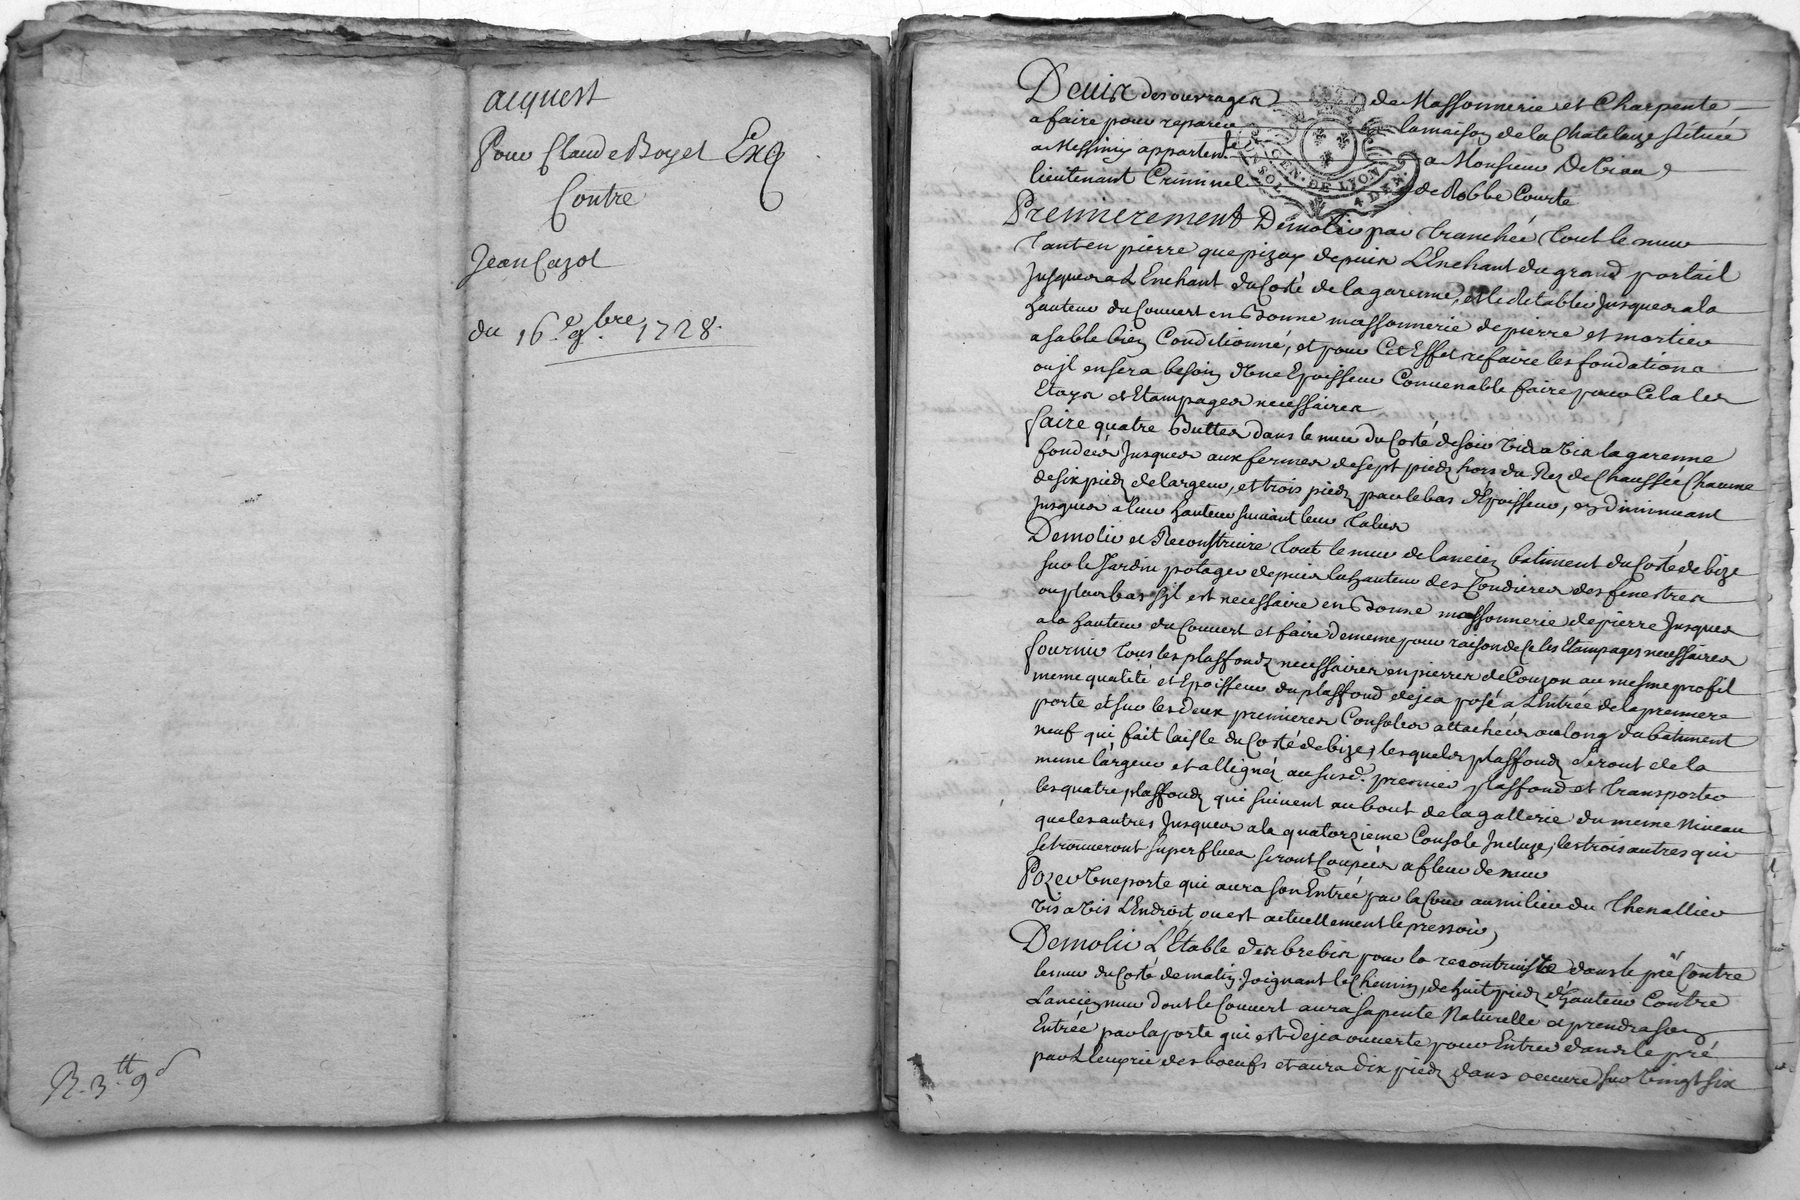 acquest
Pour Claude Boyet Exp
Contre
Jean Cazot
du 16e 9bre 1728.
R. 3tt 9d
Devis des ouvrages de Massonnerie et Charpente
a faire pour reparer la maison de la Chatelaize scituée
a Messimy appartente a Monsieur De
lieutenant Criminel de Robbe Courte
GEN. DE LYON
SOL 4 DEN.
Premierement Demolir par tranchée tout le mur
tant en pierre que pizay depuis L'Enchant du grand portail
Jusques a L'Enchant du Costé de la garenne, et le retablir Jusques a la
hauteur du Couvert en Bonne massonnerie de pierre et mortier
a sable bien Conditionné, et pour Cet Effet refaire les fondations
ou jl en sera besoin d'Une Epaisseur Convenable faire pour Cela les
Etays et Etampages necessaires
faire quatre Buttes dans le mur du Costé de soir Vis a Vis la garenne
fondées Jusques aux fermes de sept pieds hors du Rez de Chaussée Chacune
de six pieds de largeur, et trois pieds par le bas d'Epaisseur, en diminuant
Jusques a leur hauteur suivant leur talus
Demolir et Reconstruire tout le mur de lancien batiment du Costé de bize
sur le Jardin potager depuis la hauteur des Condieres des fenestres
ou plus bas sjl est necessaire en Bonne massonnerie de pierre Jusques
a la hauteur du Couvert et faire de meme pour raison de Ce les Etampages necessaires
fournir tous les plaffonds necessaires en pierres de Couzon au mesme profil
meme qualité et Epoisseur du plaffond deja posé a L'Entrée de la premiere
porte et sur les deux premieres Consoles attachées au long du batiment
neuf qui fait laisle du Costé de bize, lesquels plaffonds seront de la
meme largeur et allignez au susd. premier plaffond et transporter
les quatre plaffonds qui suivent au bout de la gallerie du meme Niveau
que les autres Jusques a la quatorzieme Console Incluze, les trois autres qui
se trouveront superflues seront Coupées a fleur de mur
Pozer Une porte qui aura son Entrée par la Cour au milieu du Chenallier
Vis a Vis L'Endroit ou est actuellement le pressoir,
Demolir L'Etable des brebis pour la recontruiste dans le pré Contre
le mur du Costé de matin Joignant le Chemin, de huit pieds d'hauteur Contre
Lancien mur dont le Couvert aura sa pente Naturelle et prendra son
Entrée par la porte qui est deja ouverte pour Entrer dans le pré
par L'Ecurie des boeufs et aura dix pieds dans oeuvre sur Vingt six